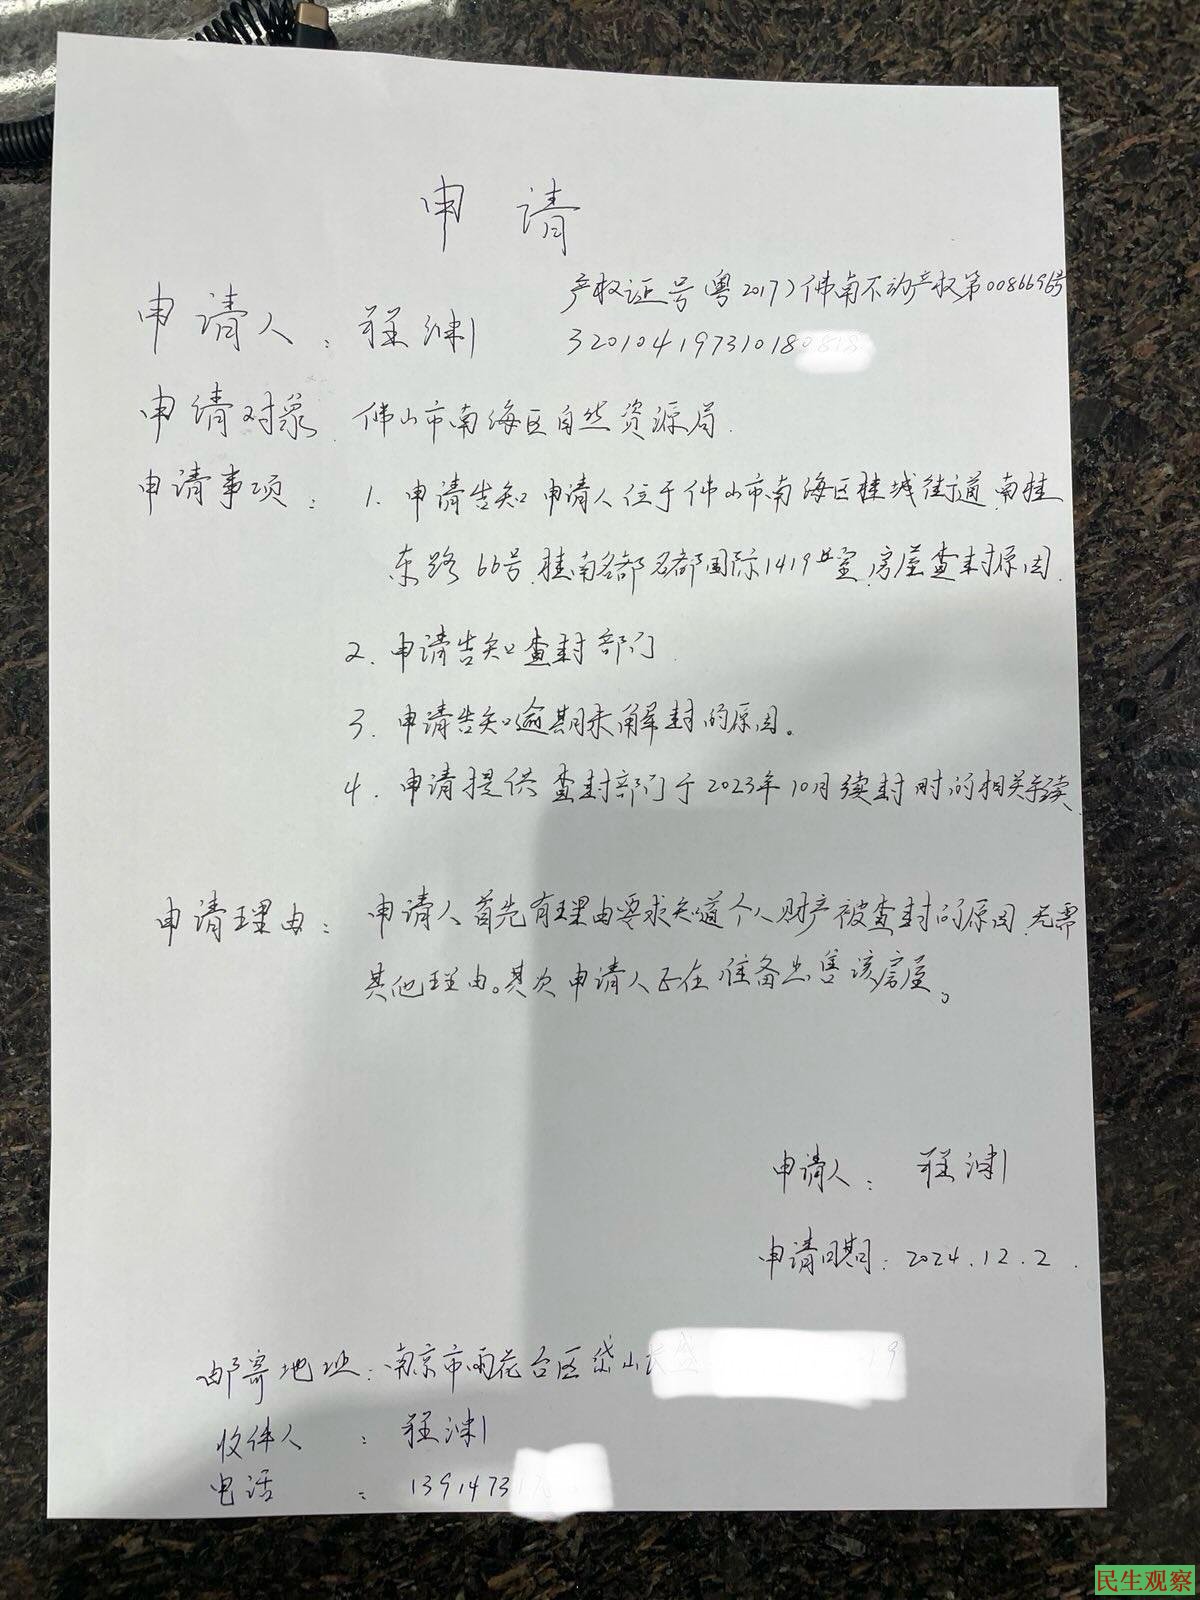 申请
产权证号(粤2017)佛南不动产权第0086696号
申请人：程渊 32010419731018
申请对象 佛山市南海区自然资源局.
申请事项：1. 申请告知申请人位于佛山市南海区桂城街道南桂
东路66号桂南名都名都国际1419 室房屋查封原因.
2. 申请告知查封部门.
3. 申请告知逾期未解封的原因。
4. 申请提供查封部门于2023年10月续封时的相关手续.
申请理由：申请人首先有理由要求知道个人财产被查封的原因.无需
其他理由。其次申请人正在准备出售该房屋。
申请人：程渊
申请日期：2024.12.2.
邮寄地址：南京市雨花台区岱山
收件人：程渊
电话：13914731
民生观察